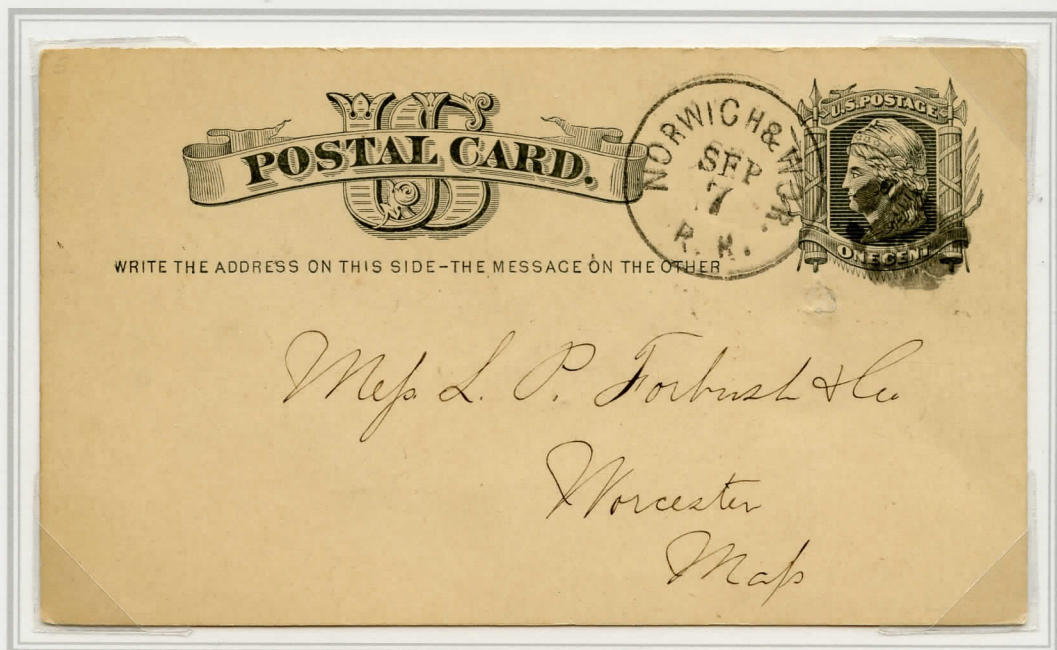 US
POSTAL CARD.
NORWICH & WOR
SEP
7
R. R.
U.S. POSTAGE
ONE CENT
WRITE THE ADDRESS ON THIS SIDE-THE MESSAGE ON THE OTHER
Mess L. P. Forbush & Co
Worcester
Mass